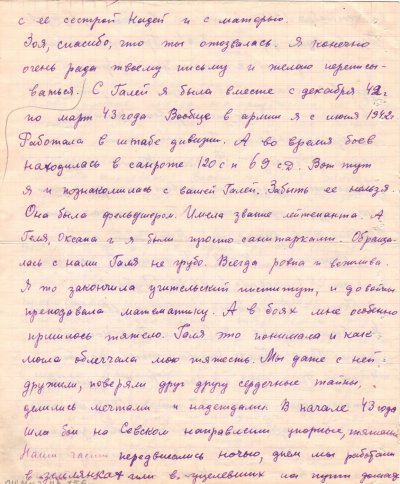 с ее сестрой Надей и с матерью.
Зоя, спасибо, что ты отозвалась. Я конечно
очень рада твоему письму и желаю переписы-
ваться. С Галей я была вместе с декабря 42г
по март 43 года. Вообще в армии я с июня 1942г
Работала в штабе дивизии. А во время боев
находилась в санроте 120 с п 69 с Д. Вот тут
я и познакомилась с вашей Галей. Забыть ее нельзя.
Она была фельдшером. Имела звание лейтенанта. А
Геля, Оксана и я были просто санитарками. Обраща-
лась с нами Галя не грубо. Всегда ровна и вежлива.
Я то закончила учительский институт, и до войны
преподавала математику. А в боях мне особенно
пришлось тяжело. Галя это понимала и как
могла облегчала мою тяжесть. Мы даже с ней
дружили, поверяли друг другу сердечные тайны,
делились мечтами и надеждами. В начале 43 года
шли бои на Севском направлении упорные, тяжелые
Наши части передвигались ночью, днем мы работали
в землянках или в уцелевших на пути домах